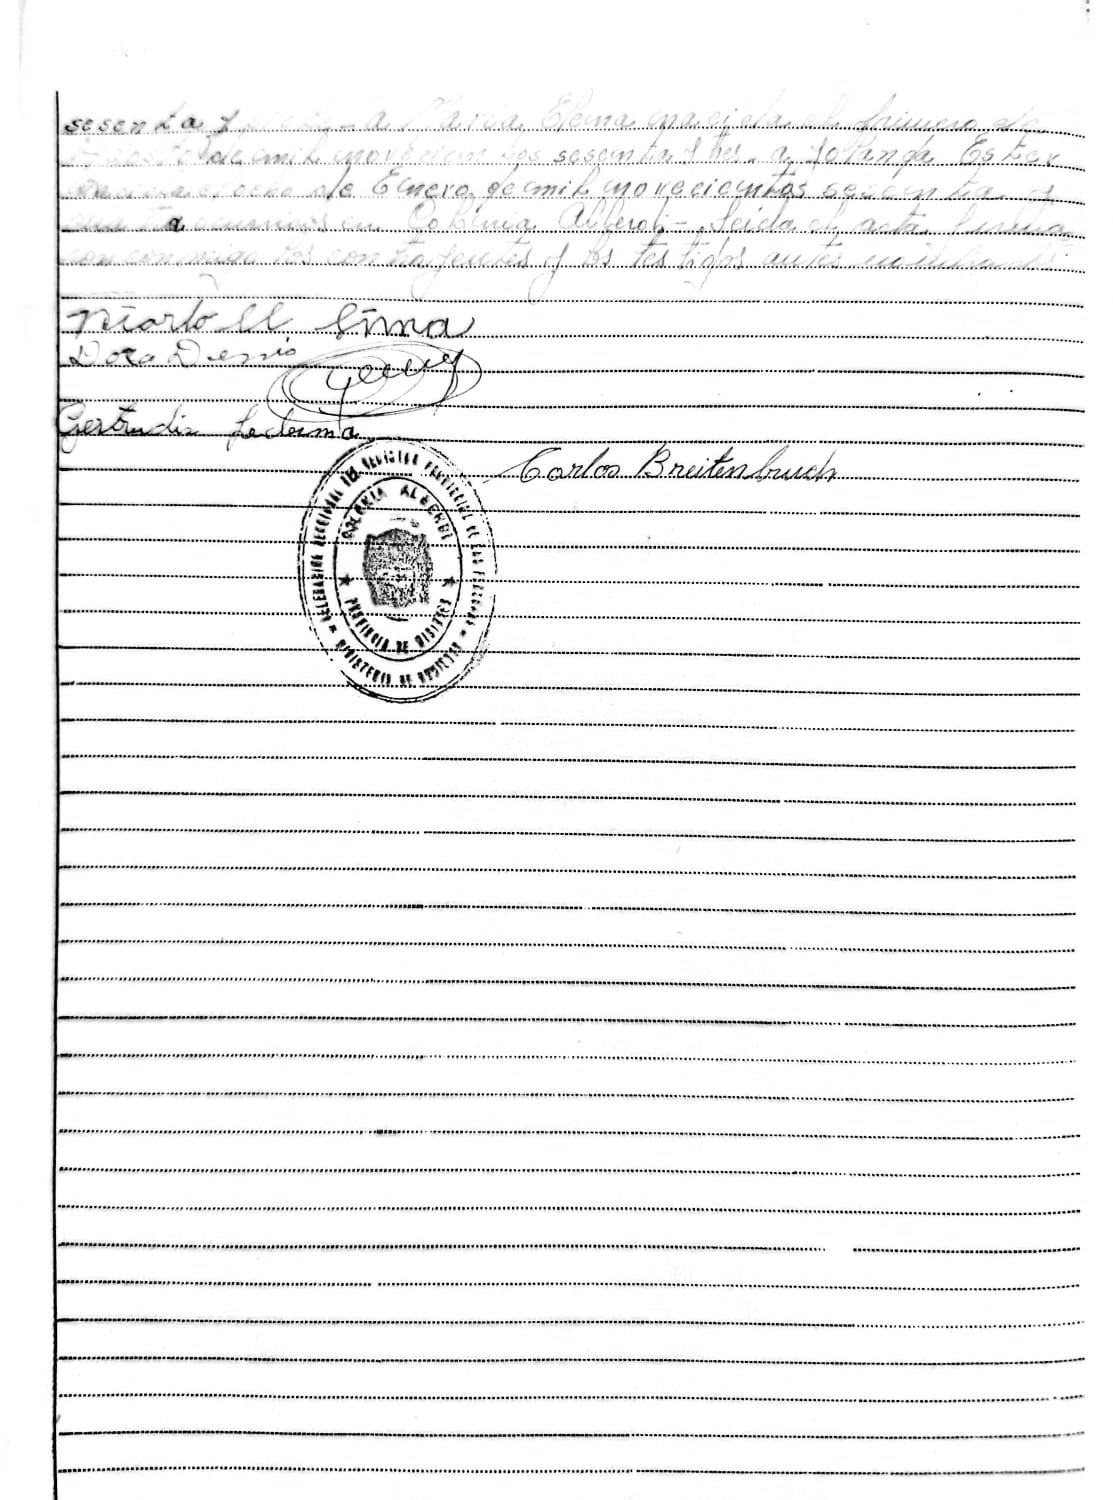 sesenta y siete - a Maria Elena nacida el primero de
Agosto de mil novecientos sesenta y tres - a Yolanda Ester
nacida el ocho de Enero de mil novecientos sesenta y
ocurridos en Colonia Alberdi - Leida el acta firman
con migo los contrayentes y los testigos antes
Dora
Gertrudis Ledesma
Carlos Breitenbruch
DELEGACION SECCIONAL DEL REGISTRO PROVINCIAL DE LAS PERSONAS
COLONIA ALBERDI
PROVINCIA DE MISIONES
MINISTERIO DE